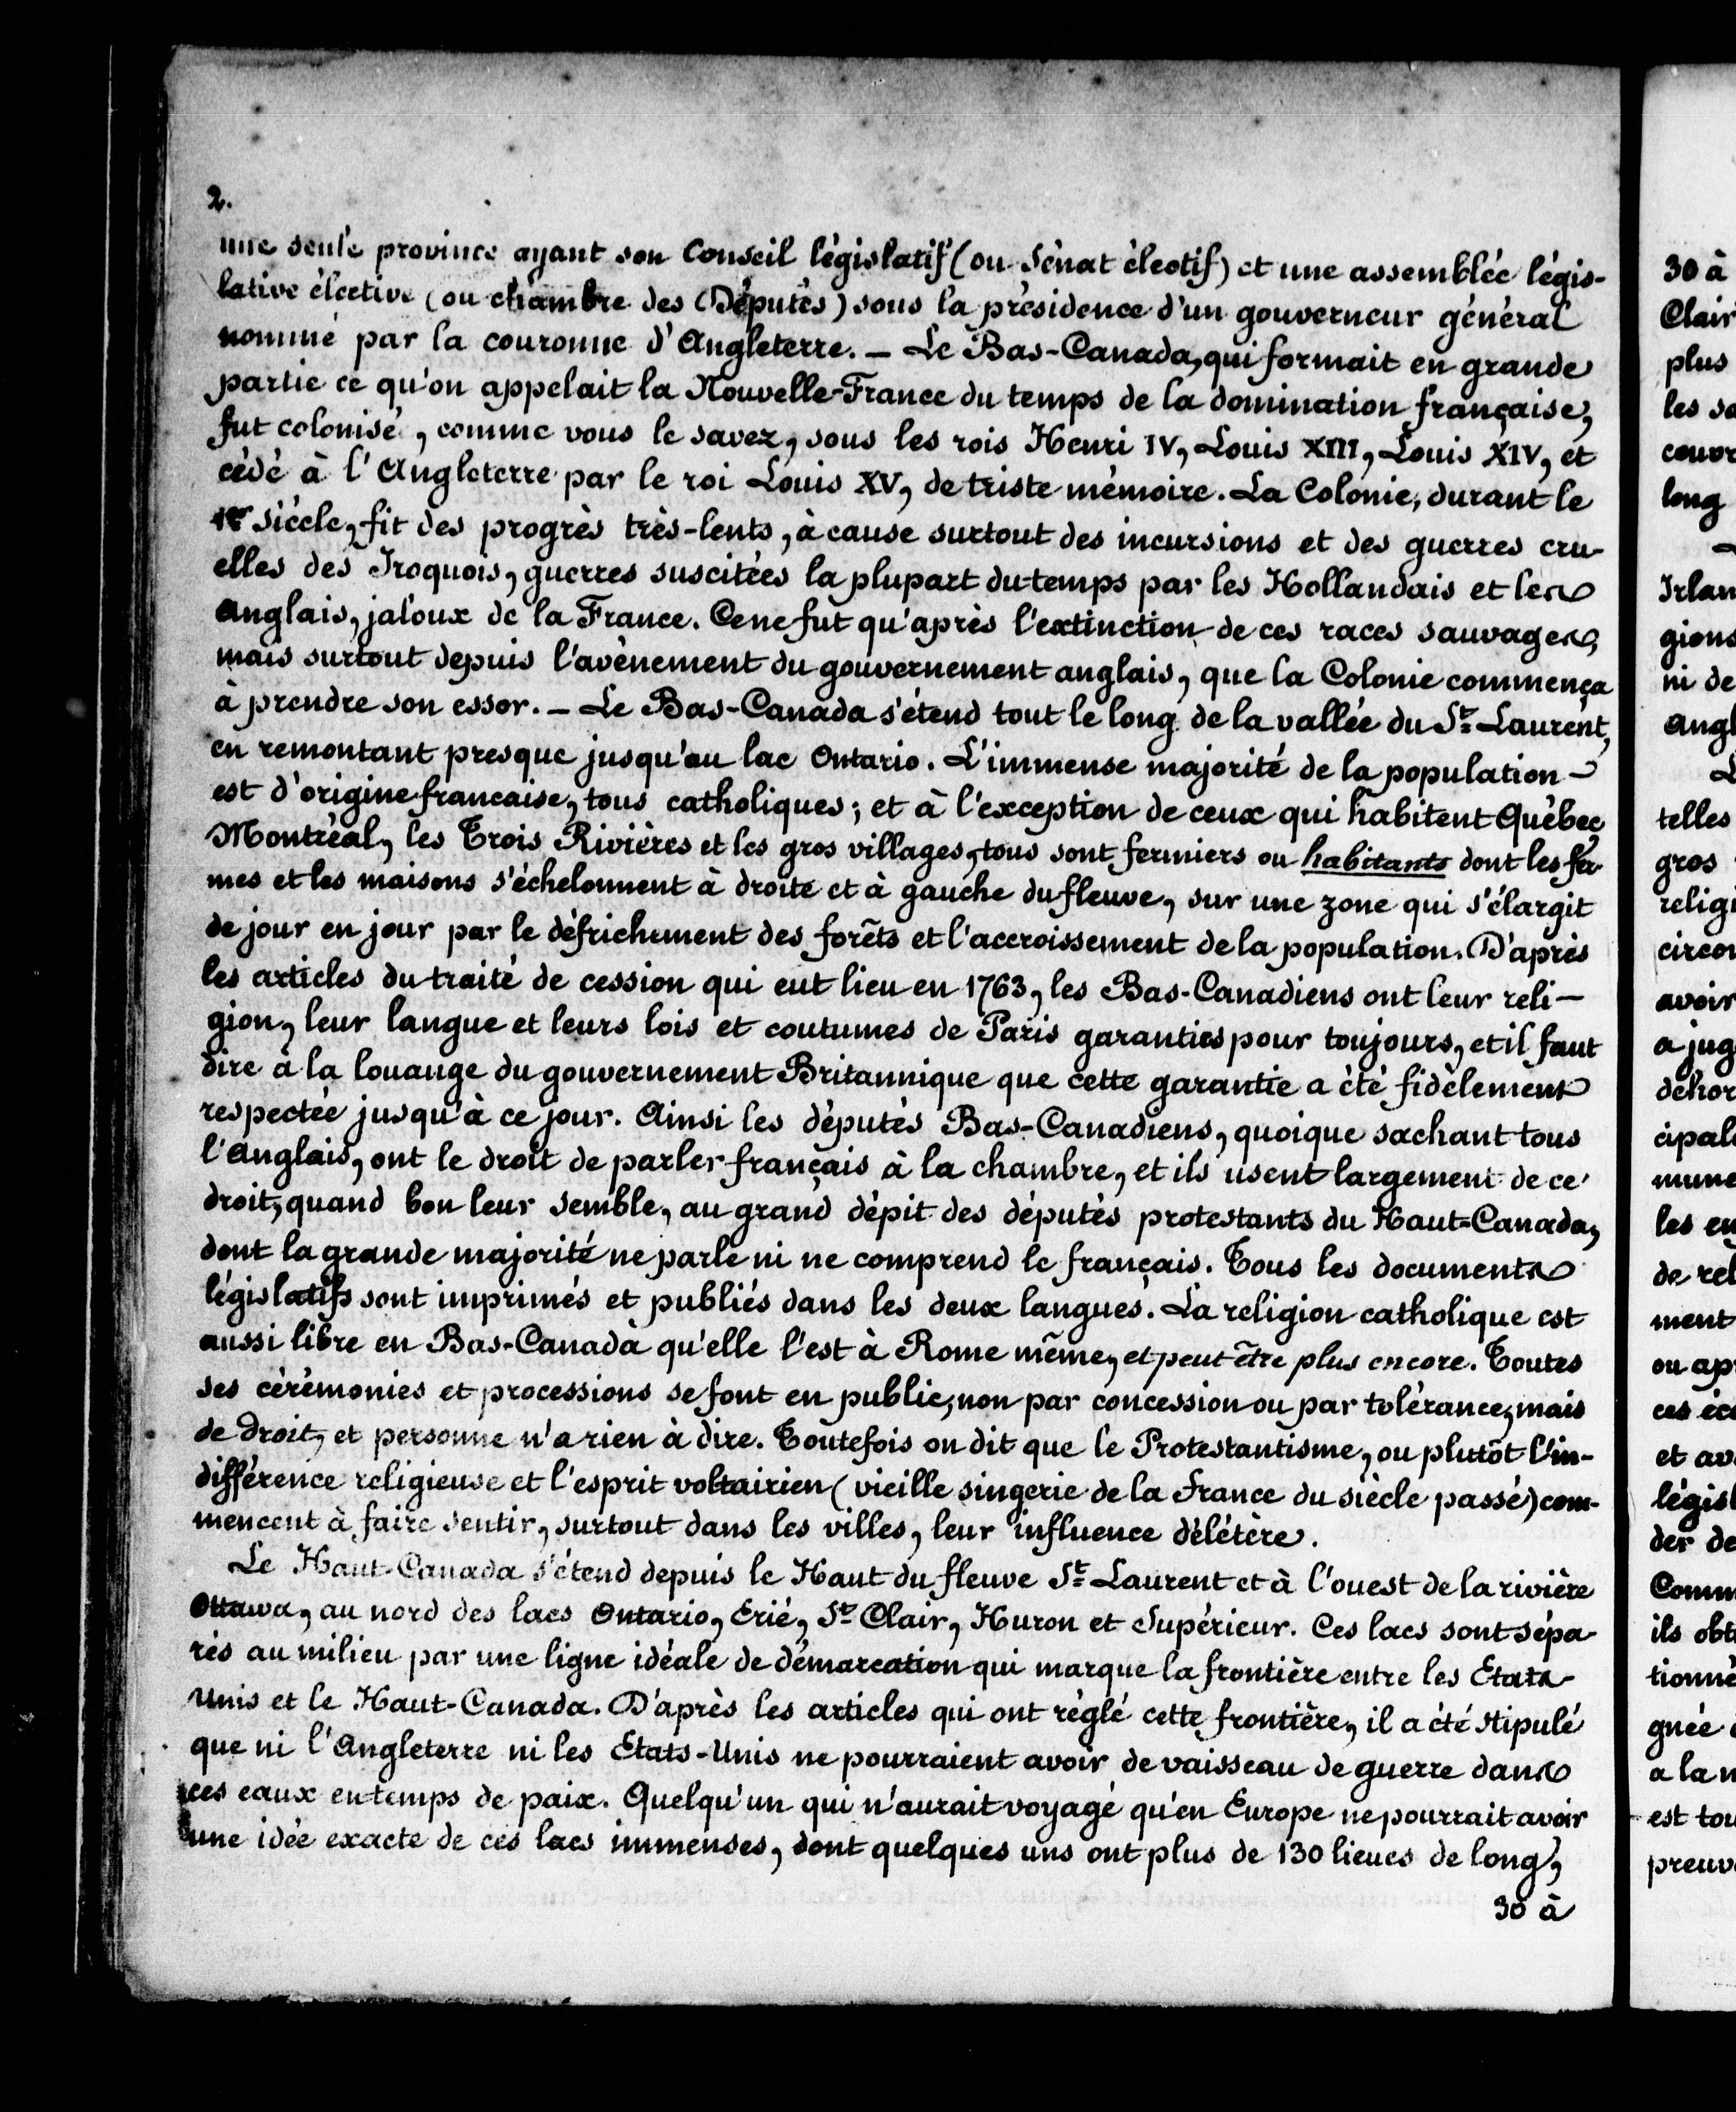 2.
une seule province ayant son Conseil législatif (ou Sénat électif) et une assemblée légis-
lative élective (ou chambre des Députés) sous la présidence d'un gouverneur général
nommé par la couronne d'Angleterre. — Le Bas-Canada, qui formait en grande
partie ce qu'on appelait la Nouvelle-France du temps de la domination française,
fut colonisé, comme vous le savez, sous les rois Henri IV, Louis XIII, Louis XIV, et
cédé à l'Angleterre par le roi Louis XV, de triste mémoire. La Colonie, durant le
1er siècle, fit des progrès très-lents, à cause surtout des incursions et des guerres cru-
elles des Iroquois, guerres suscitées la plupart du temps par les Hollandais et les
Anglais, jaloux de la France. Ce ne fut qu'après l'extinction de ces races sauvages,
mais surtout depuis l'avènement du gouvernement anglais, que la Colonie commença
à prendre son essor. — Le Bas-Canada s'étend tout le long de la vallée du St. Laurent,
en remontant presque jusqu'au lac Ontario. L'immense majorité de la population
est d'origine francaise, tous catholiques; et à l'exception de ceux qui habitent Québec,
Montréal, les Trois Rivières et les gros villages, tous sont fermiers ou habitants dont les fer-
mes et les maisons s'échelonnent à droite et à gauche du fleuve, sur une zone qui s'élargit
de jour en jour par le défrichement des forêts et l'accroissement de la population. D'après
les articles du traité de cession qui eut lieu en 1763, les Bas-Canadiens ont leur reli-
gion, leur langue et leurs lois et coutumes de Paris garanties pour toujours, et il faut
dire à la louange du gouvernement Britannique que cette garantie a été fidèlement
respectée jusqu'à ce jour. Ainsi les députés Bas-Canadiens, quoique sachant tous
l'Anglais, ont le droit de parler français à la chambre, et ils usent largement de ce
droit, quand bon leur semble, au grand dépit des députés protestants du Haut-Canada,
dont la grande majorité ne parle ni ne comprend le français. Tous les documents
législatifs sont imprimés et publiés dans les deux langues. La religion catholique est
aussi libre en Bas-Canada qu'elle l'est à Rome même, et peut être plus encore. Toutes
ses cérémonies et processions se font en public, non par concession ou par tolérance, mais
de droit, et personne n'a rien à dire. Toutefois on dit que le Protestantisme, ou plutôt l'in-
différence religieuse et l'esprit voltairien (vieille singerie de la France du siècle passé) com-
mencent à faire sentir, surtout dans les villes, leur influence délétère.
Le Haut-Canada s'étend depuis le Haut du fleuve St. Laurent et à l'ouest de la rivière
Ottawa, au nord des lacs Ontario, Erié, St. Clair, Huron et Supérieur. Ces lacs sont sépa-
rés au milieu par une ligne idéale de démarcation qui marque la frontière entre les Etats-
Unis et le Haut-Canada. D'après les articles qui ont réglé cette frontière, il a été stipulé
que ni l'Angleterre ni les Etats-Unis ne pourraient avoir de vaisseau de guerre dans
ces eaux en temps de paix. Quelqu'un qui n'aurait voyagé qu'en Europe ne pourrait avoir
une idée exacte de ces lacs immenses, dont quelques uns ont plus de 130 lieues de long,
30 à
30 à
Clair
plus
les sa
couvr
long
Irlan
gions
ni de
angl
telles
gros
relig
circon
avoir
a jug
dehor
cipale
mune
les en
de rel
ment
ou ap
ces éc
et av
légis
der de
Comm
ils obt
tionné
gnée
a la n
est tou
preuv